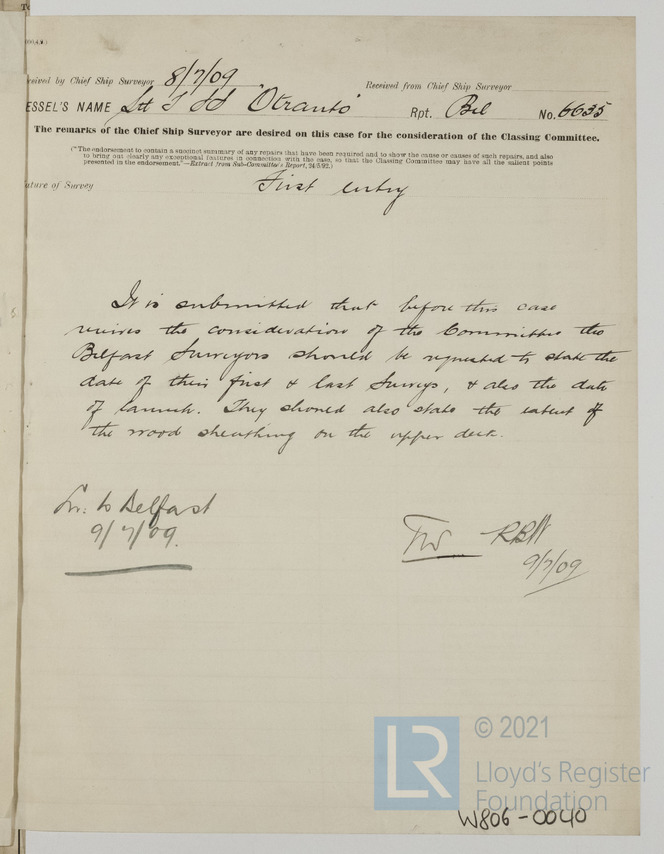 ceived by Chief Ship Surveyor 8/7/09 Received from Chief Ship Surveyor
ESSEL'S NAME "Otranto" Rpt. Bel No. 6635
The remarks of the Chief Ship Surveyor are desired on this case for the consideration of the Classing Committee.
("The endorsement to contain a succinct summary of any repairs that have been required and to show the cause or causes of such repairs, and also
to bring out clearly any exceptional features in connection with the case, so that the Classing Committee may have all the salient points
presented in the endorsement."—Extract from Sub-Committee's Report, 24/5/92.)
ature of Survey First entry
It is submitted that before this case
receives the consideration of the Committee the
Belfast Surveyors should be requested to state the
date of their first & last Surveys, & also the date
of launch. They should also state the extent of
the wood sheathing on the upper deck.
to Belfast
9/7/09.
RBW
9/7/09
LR
© 2021
Lloyd's Register
Foundation
W806-0040